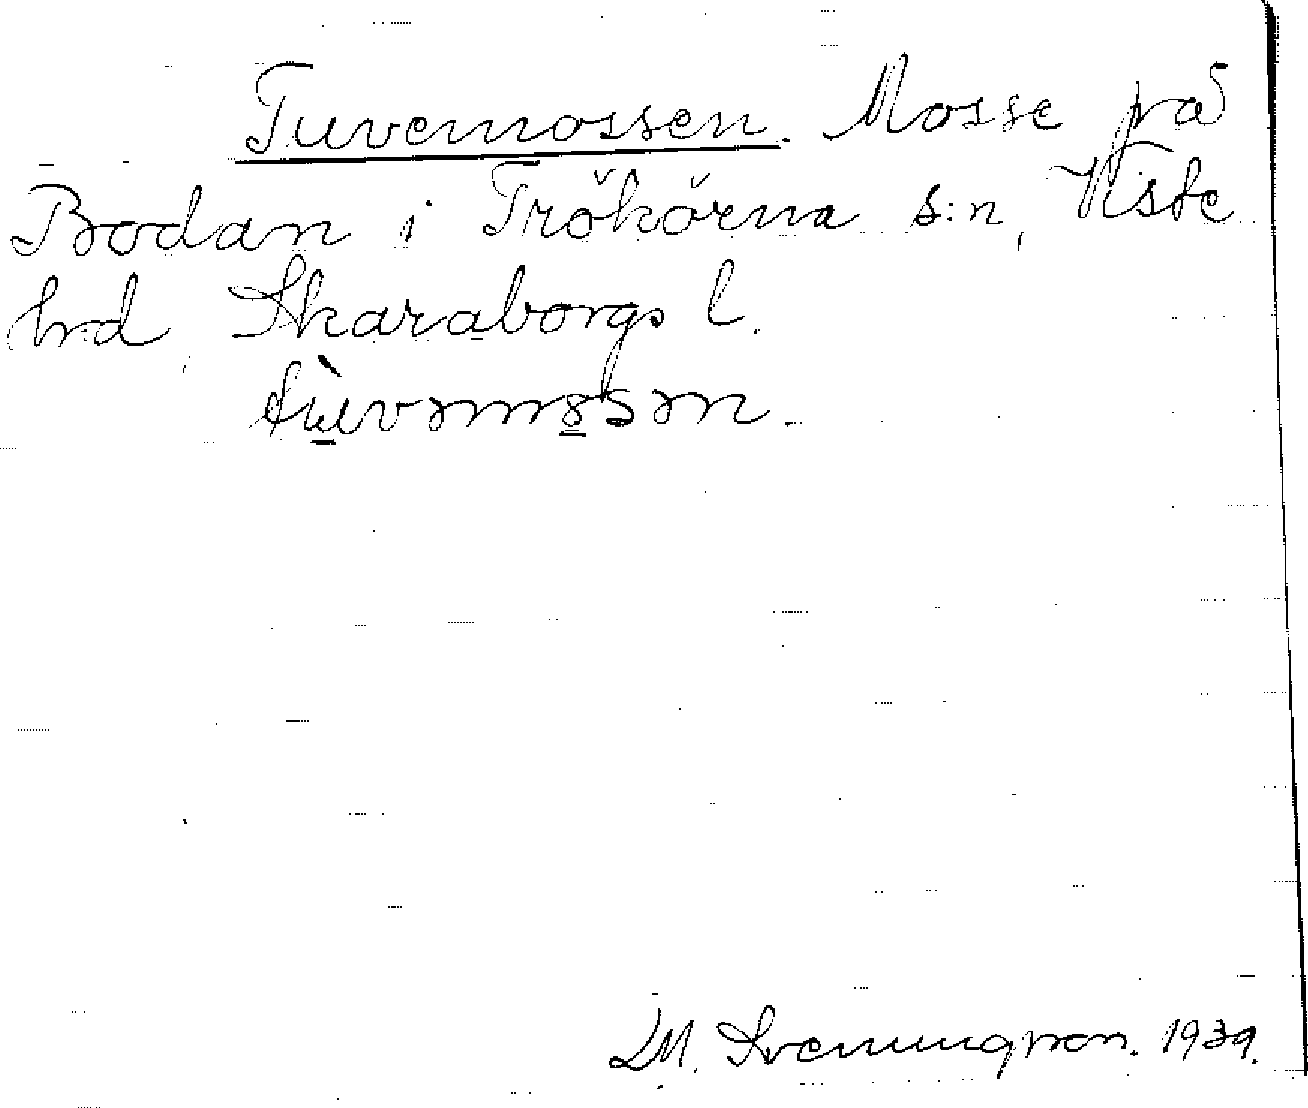 Tuvemossen. Mosse på
Bodan i Trökörna s:n, Viste
hrd, Skaraborgs l.
M. Svenningson. 1939.